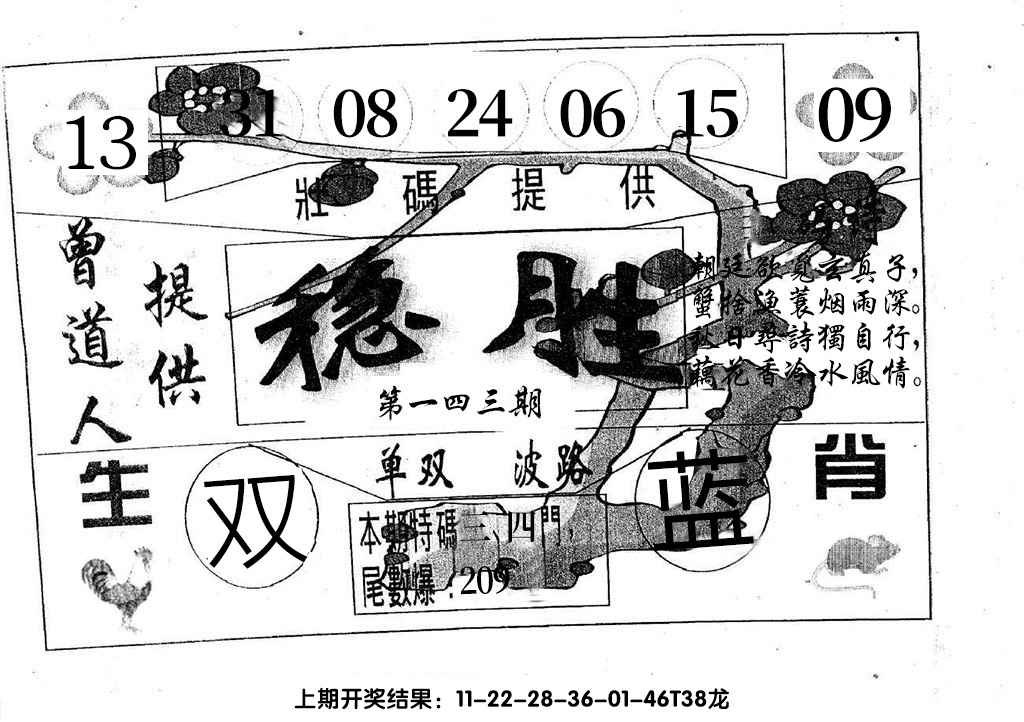 13 31 08 24 06 15 09
壯碼提供
曾道人
提供
穩胜
第一四三期
朝廷欲覓玄真子，
蟹恰漁蓑烟雨深。
秋日尋詩獨自行，
藕花香冷水風情。
单双 波路
生肖
双
蓝
本期特碼三、四門，
尾數爆：209
上期开奖结果：11-22-28-36-01-46T38龙